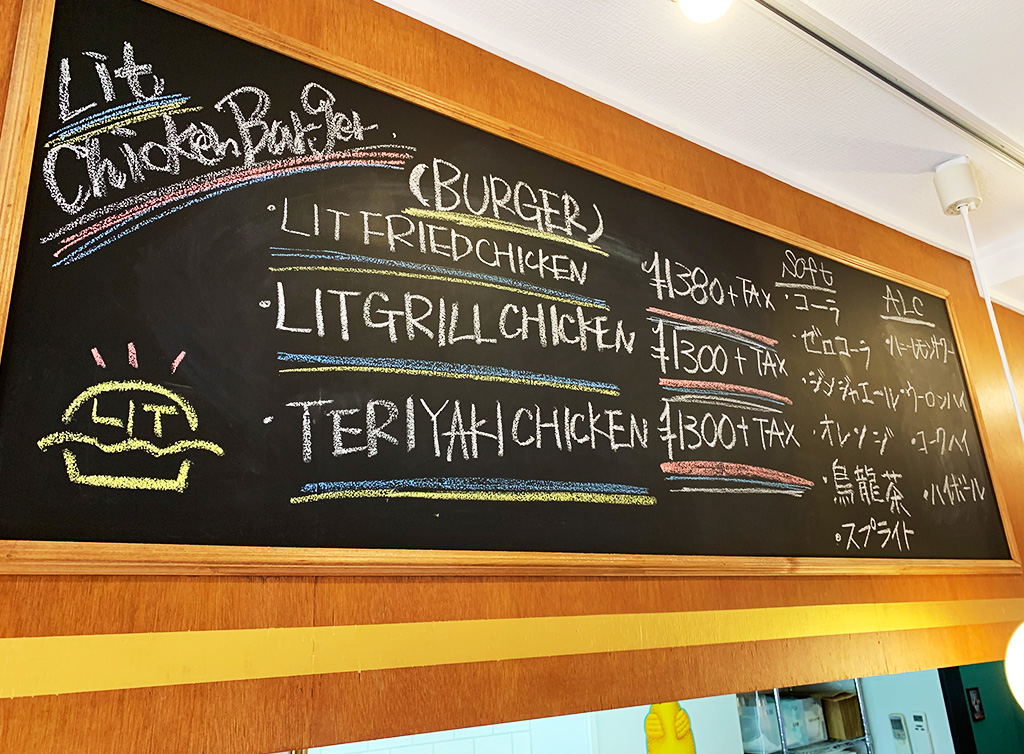 Lit
Chicken Burger
(BURGER)
・LIT FRIED CHICKEN
¥1380+TAX
・LIT GRILL CHICKEN
¥1300+TAX
・TERIYAKI CHICKEN
¥1300+TAX
LIT
Soft
・コーラ
・ゼロコーラ
・ジンジャエール
・オレンジ
・烏龍茶
・スプライト
ALC
・ハニーレモンサワー
・ウーロンハイ
・コークハイ
・ハイボール